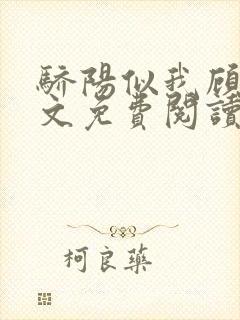 驕陽似我顧
文免費閱讀
柯良藥